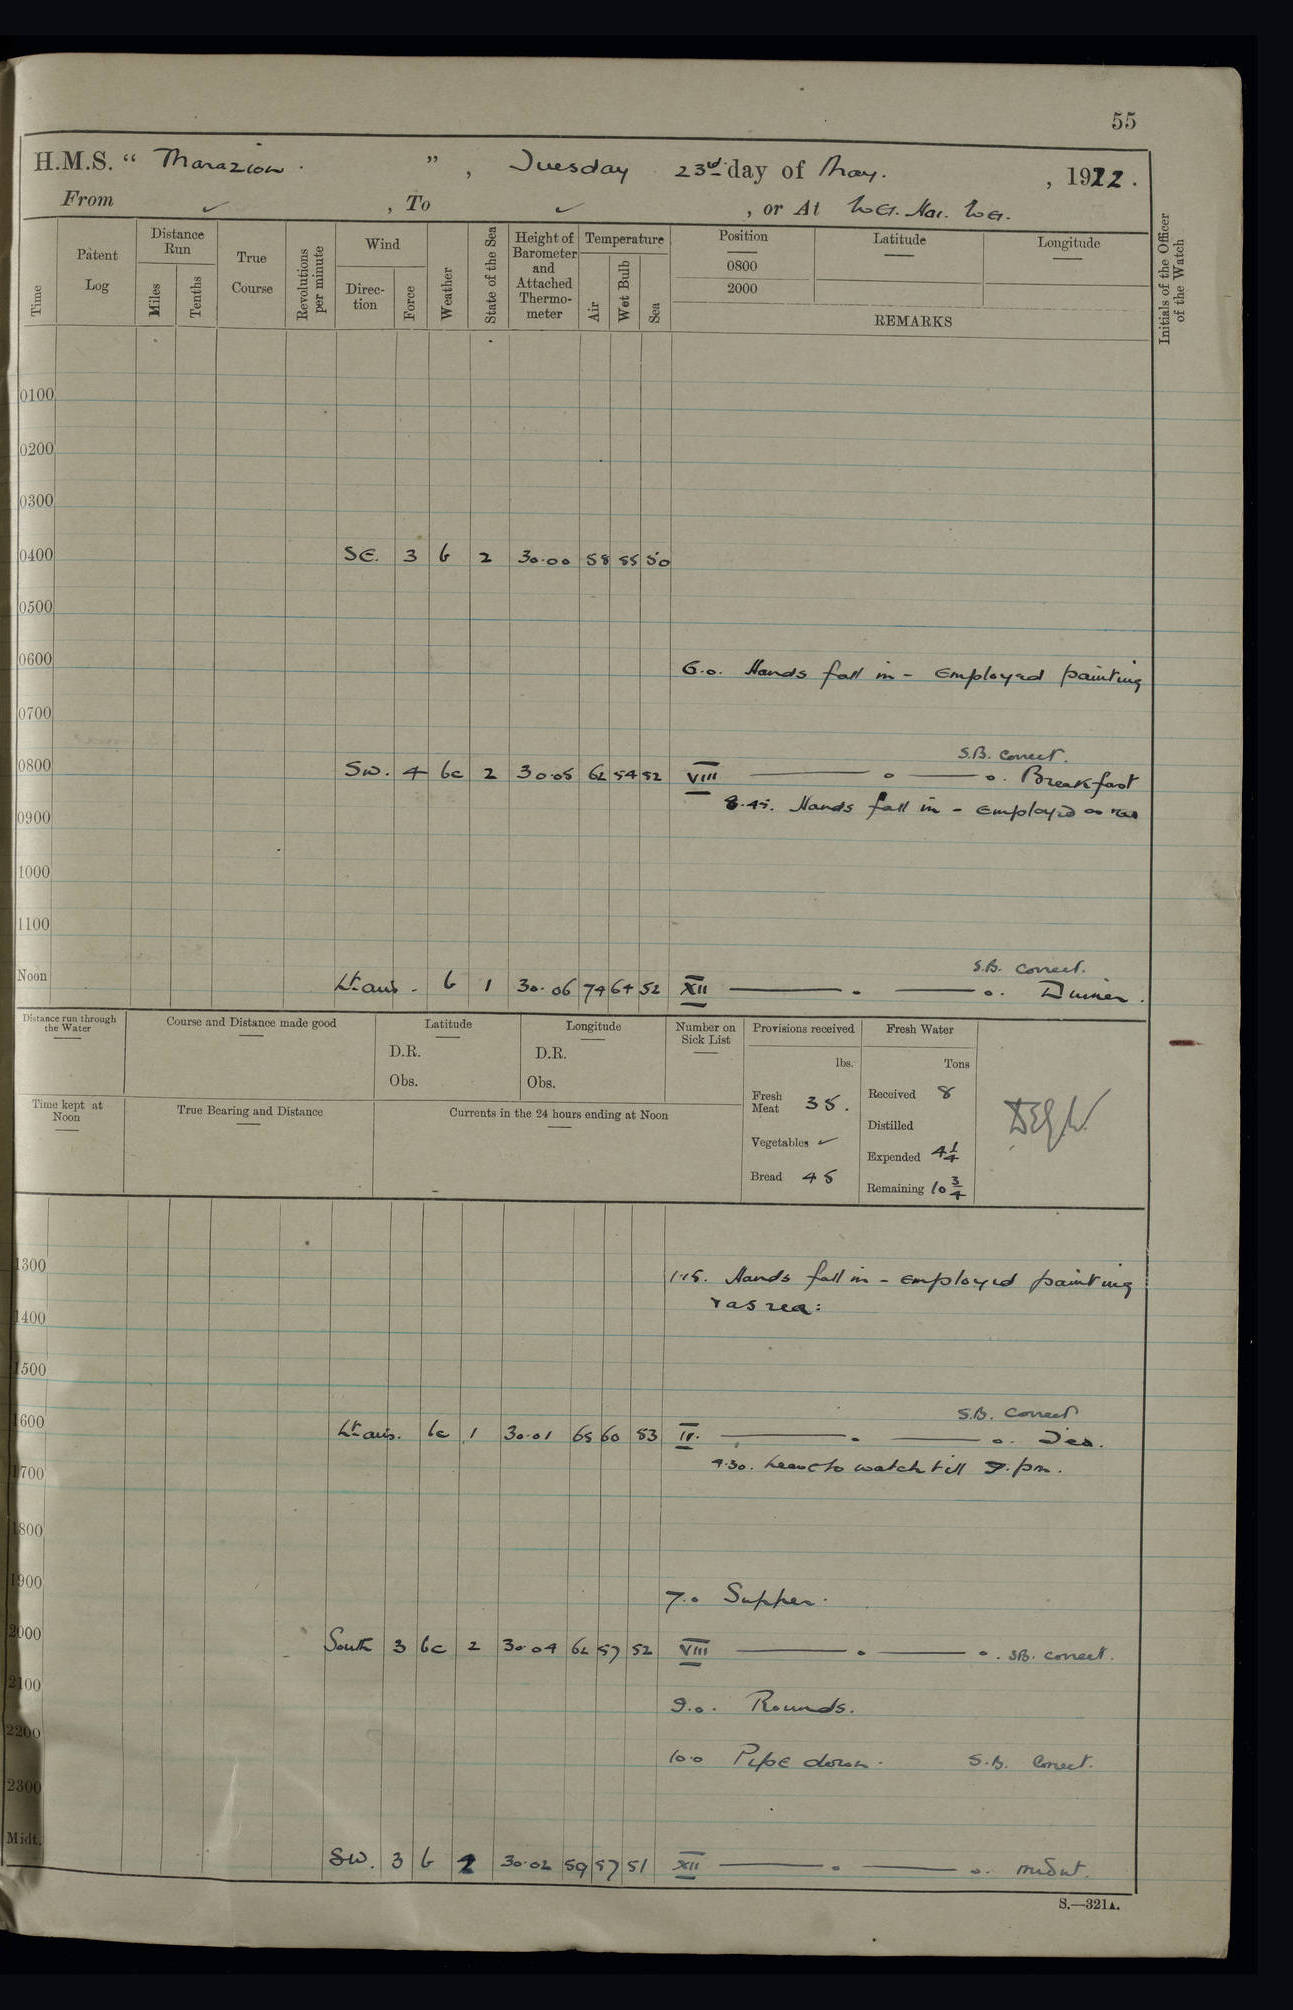 55
H.M.S. “ Marazion. ” , Tuesday 23rd day of May. , 1922.
From ✓ , To ✓ , or At Wei. Hai. Wei.
Time
Patent Log
Distance Run
Miles
Tenths
True Course
Revolutions per minute
Wind
Direction
Force
Weather
State of the Sea
Height of Barometer and Attached Thermometer
Temperature
Air
Wet Bulb
Sea
Position
0800
2000
Latitude
Longitude
REMARKS
Initials of the Officer of the Watch
0100
0200
0300
0400 SE. 3 b 2 30.00 58 55 50
0500
0600 6.0. Hands fall in - Employed painting
0700
S.B. correct.
0800 SW. 4 bc 2 30.05 62 54 52 VIII —— o —— o. Breakfast
8.45. Hands fall in - Employed as req
0900
1000
1100
S.B. correct.
Noon Lt airs. b 1 30.06 74 64 52 XII —— o —— o. Dinner.
Distance run through the Water
Course and Distance made good
Latitude
D.R.
Obs.
Longitude
D.R.
Obs.
Number on Sick List
Provisions received
lbs.
Fresh Meat 35.
Vegetables ✓
Bread 45
Fresh Water
Tons
Received 8
Distilled
Expended 4 1/4
Remaining 10 3/4
Time kept at Noon
True Bearing and Distance
Currents in the 24 hours ending at Noon
1300 1.15. Hands fall in - Employed painting
& as req:
1400
1500
S.B. correct
1600 Lt airs. bc 1 30.01 65 60 53 IV. —— o —— o. Tea.
4.30. Leave to watch till 7. pm.
1700
1800
1900 7.0 Supper.
2000 South 3 bc 2 30.04 62 57 52 VIII —— o —— o. SB. correct.
2100 9.0. Rounds.
2200 10.0 Pipe down. S.B. Correct.
2300
Midt. SW. 3 b 2 30.02 59 57 51 XII —— o —— o. midnt.
S.—321A.